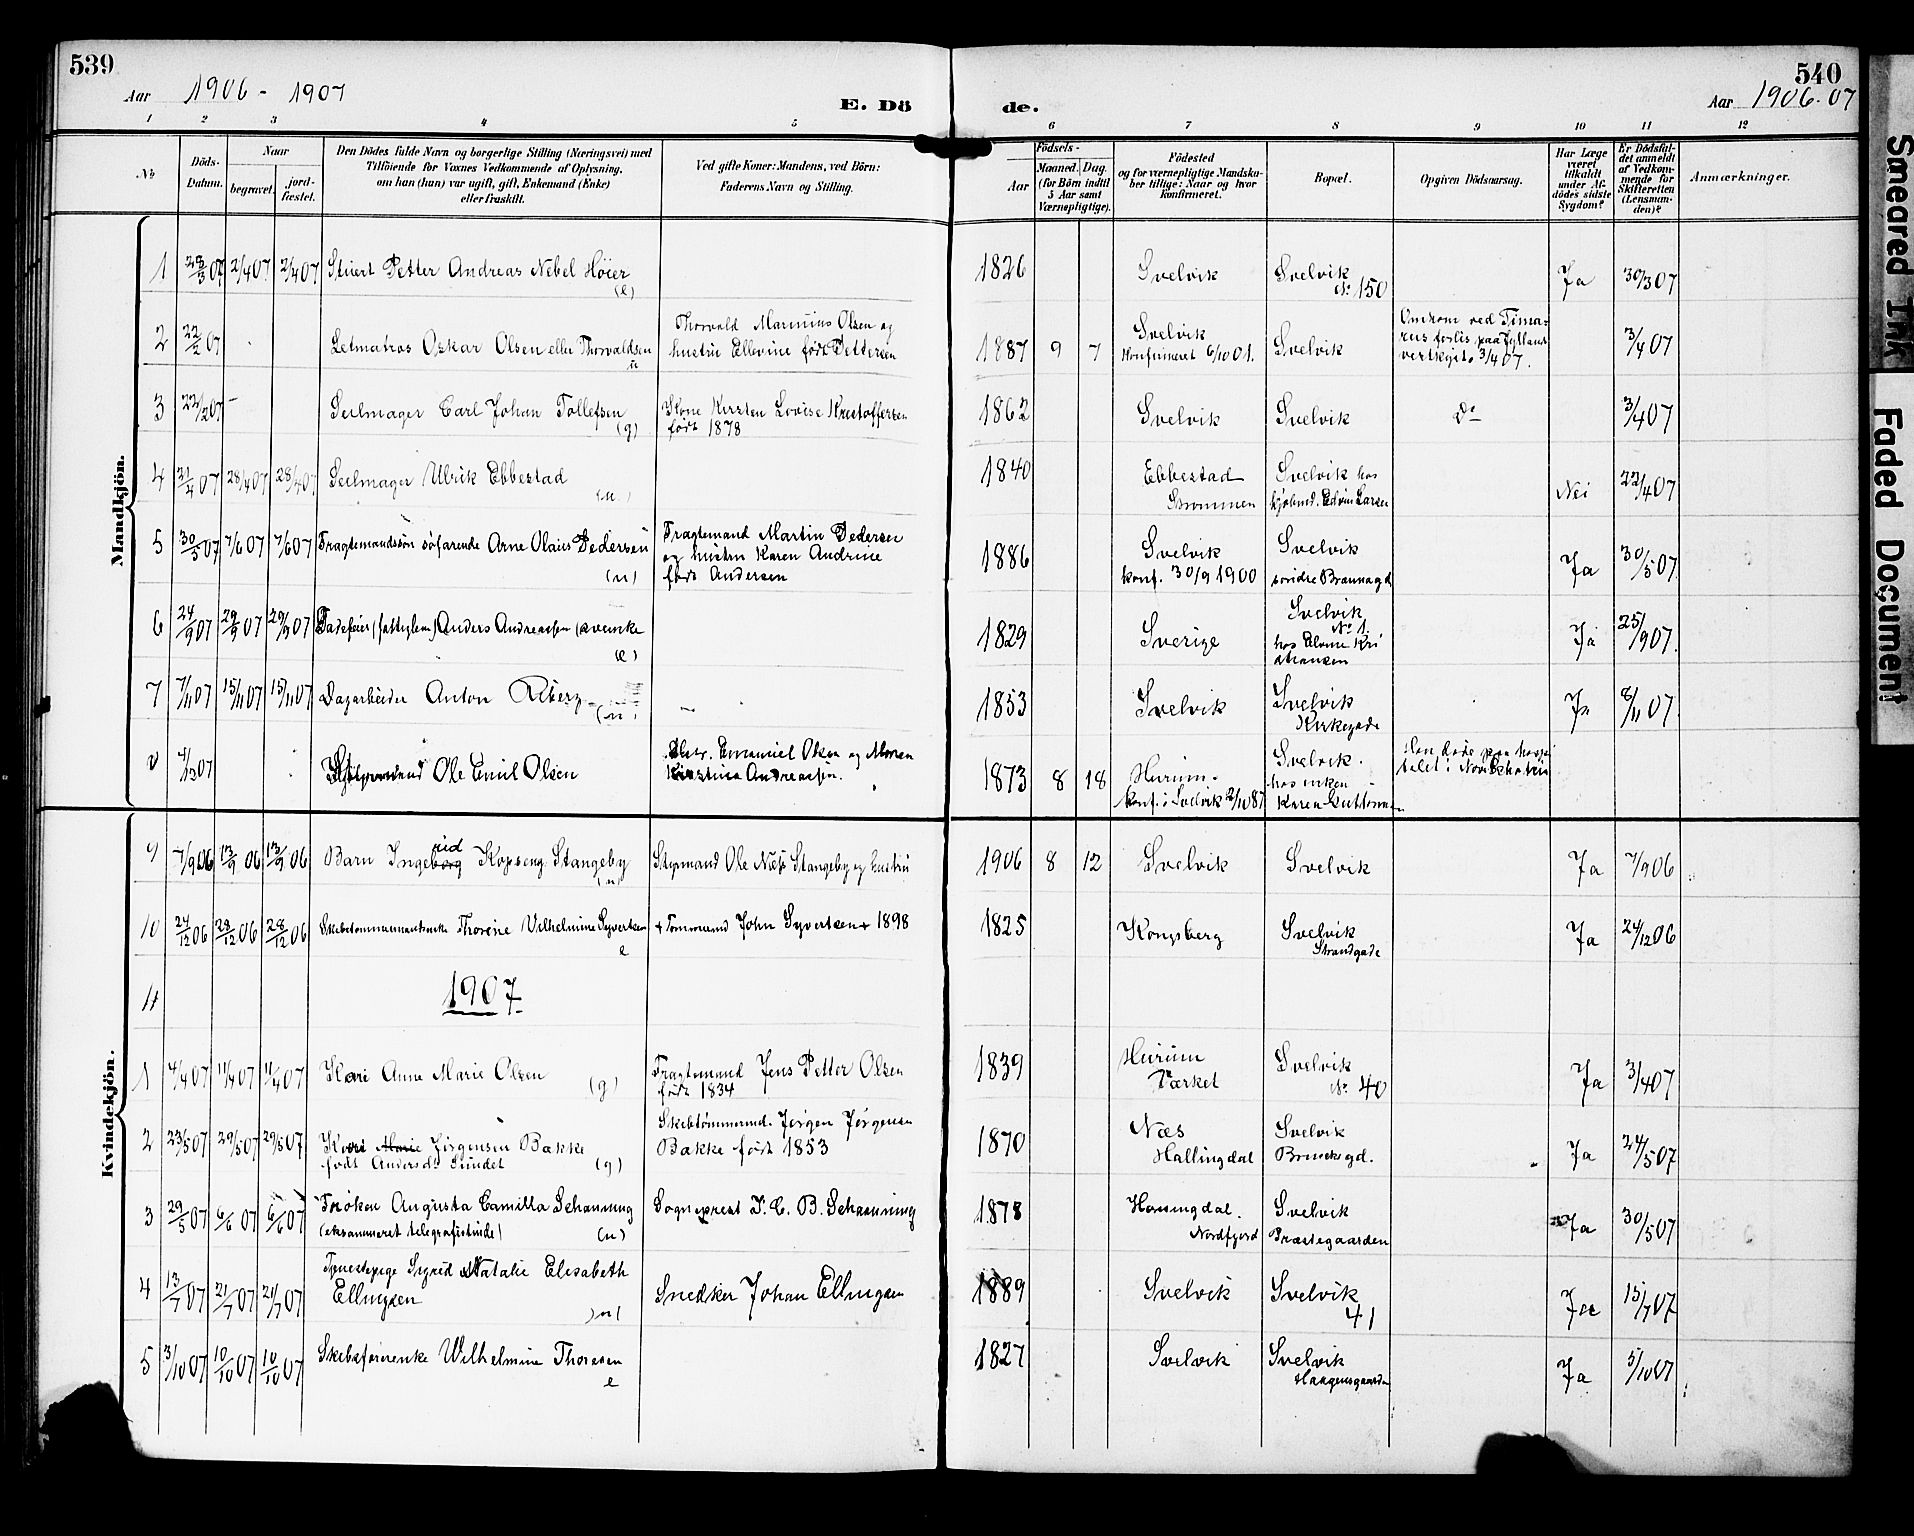 539
Aar 1906 - 1907
E. Dö
de.
540
Aar 1906-07
1 2 3 4 5 6 7 8 9 10 11 12
No
Döds-
Datum.
Naar
begravet.
jord-
fæstet.
Den Dödes fulde Navn og borgerlige Stilling (Næringsvei) med
Tilföiende for Voxnes Vedkommende af Oplysning,
om han (hun) var ugift, gift, Enkemand (Enke)
eller fraskilt.
Ved gifte Koner: Mandens, ved Börn:
Faderens Navn og Stilling.
Födsels-
Aar
Maaned. Dag.
(for Börn indtil
5 Aar samt
Værnepligtige).
Födested
og for værnepligtige Mandska-
ber tillige: Naar og hvor
konfirmeret.
Bopæl.
Opgiven Dödsaarsag.
Har Læge
været
tilkaldt
under Af-
dödes sidste
Sygdom?
Er Dödsfal-
det anmeldt
af Vedkom-
mende for
Skifteretten
(Lensman-
den)?
Anmærkninger.
Mandkjön.
1 2/4 07 2/4 07 Petter Andreas Nebel Höier
(e)
1826 Svelvik Svelvik
No 150
Ja 30/3 07
2 22/2 07 Letmatros Oskar Olsen eller Thorvaldsen
u
Thorvald Marinius Olsen og
hustru Ellevine født Pettersen
1887 9 7 Svelvik
Konfirmeret 6/10 01.
Svelvik
Omkom ved Tima-
rus forlis paa Jyllands
vestkyst 3/4 07.
3/4 07
3 22/2 07 - Seilmager Carl Johan Tollefsen
(g)
Kone Kirsten Lovise Kristoffersen
født 1878
1862 Svelvik Svelvik Do 3/4 07
4 21/4 07 28/4 07 28/4 07 Seilmager Ulrik Ebbestad
(u.)
1840 Ebbestad
Strømmen
Svelvik hos
kjøbmd. Edvin Larsen
Nei 22/4 07
5 30/5 07 7/6 07 7/6 07 Fragtemandssøn søfarende Arne Olaus Pedersen
(u)
Fragtemand Martin Pedersen
og hustru Karen Andrine
født Andersen
1886 Svelvik
konf. 30/9 1900
Svelvik
søndre Brannagd
Ja 30/5 07.
6 24/9 07 29/9 07 29/9 07 Anders Andreassen (svenske
(e)
1829 Sverige Svelvik
No 1.
hos Elvine Kri
stiansen
Ja 25/9 07.
7 7/11 07 15/11 07 15/11 07 Dagarbeider Anton
(u)
1853 Svelvik Svelvik
Kirkegade
Ja 8/11 07.
8 4/3 07 Ole Emil Olsen
Emanuel Olsen og Maren
Kirstina Andreassen.
1873 8 18 Hurum.
konf. i Svelvik 2/10 87
Svelvik.
hos enken
Karen Guttormsen
døde paa hospi
talet i
Kvindekjön.
9 7/9 06 13/9 06 13/9 06 Barn Ingeborg rid Kopseng Stangeby
(u)
Styrmand Ole Niels Stangeby og hustru
1906 8 12 Svelvik Svelvik Ja 7/9 06
10 24/12 06 28/12 06 28/12 06 Skibstømmermandsenke Thorine Vilhelmine Syvertsen
e
+ Tømmermd John Syvertsen + 1898
1825 Kongsberg Svelvik
Strandgade
Ja 24/12 06
11 1907
1 4/4 07 11/4 07 11/4 07 Kari Anne Marie Olsen (g)
Fragtemand Jens Petter Olsen
født 1834
1839 Hurum
Værket
Svelvik
No 40
Ja 3/4 07
2 23/5 07 29/5 07 29/5 07 Kari Marie Jørgensen Bakke
født Andersdt. Sundet (g)
Skibstømmermd. Jørgen Jørgensen
Bakke født 1853
1870 Næs
Hallingdal
Svelvik
Ja 24/5 07
3 29/5 07 6/6 07 6/6 07 Frøken Augusta Camilla Schanning
(eksamineret telegrafistinde) (u)
Sogneprest P. C. B. Schanning
1878 Horningdal.
Nordfjord
Svelvik
Præstegaarden
Ja 30/5 07
4 13/7 07 21/7 07 21/7 07 Tjenestepige Sigrid Natalie Elisabeth
Ellingsen
(u)
Snedker Johan Ellingsen
1889 Svelvik Svelvik
41
Ja 15/7 07
5 3/10 07 10/10 07 10/10 07 Skibsførerenke Wilhelmine Thoresen
e
1827 Svelvik Svelvik
Haagensgaarden
Ja 5/10 07
Smeared Ink
Faded Document